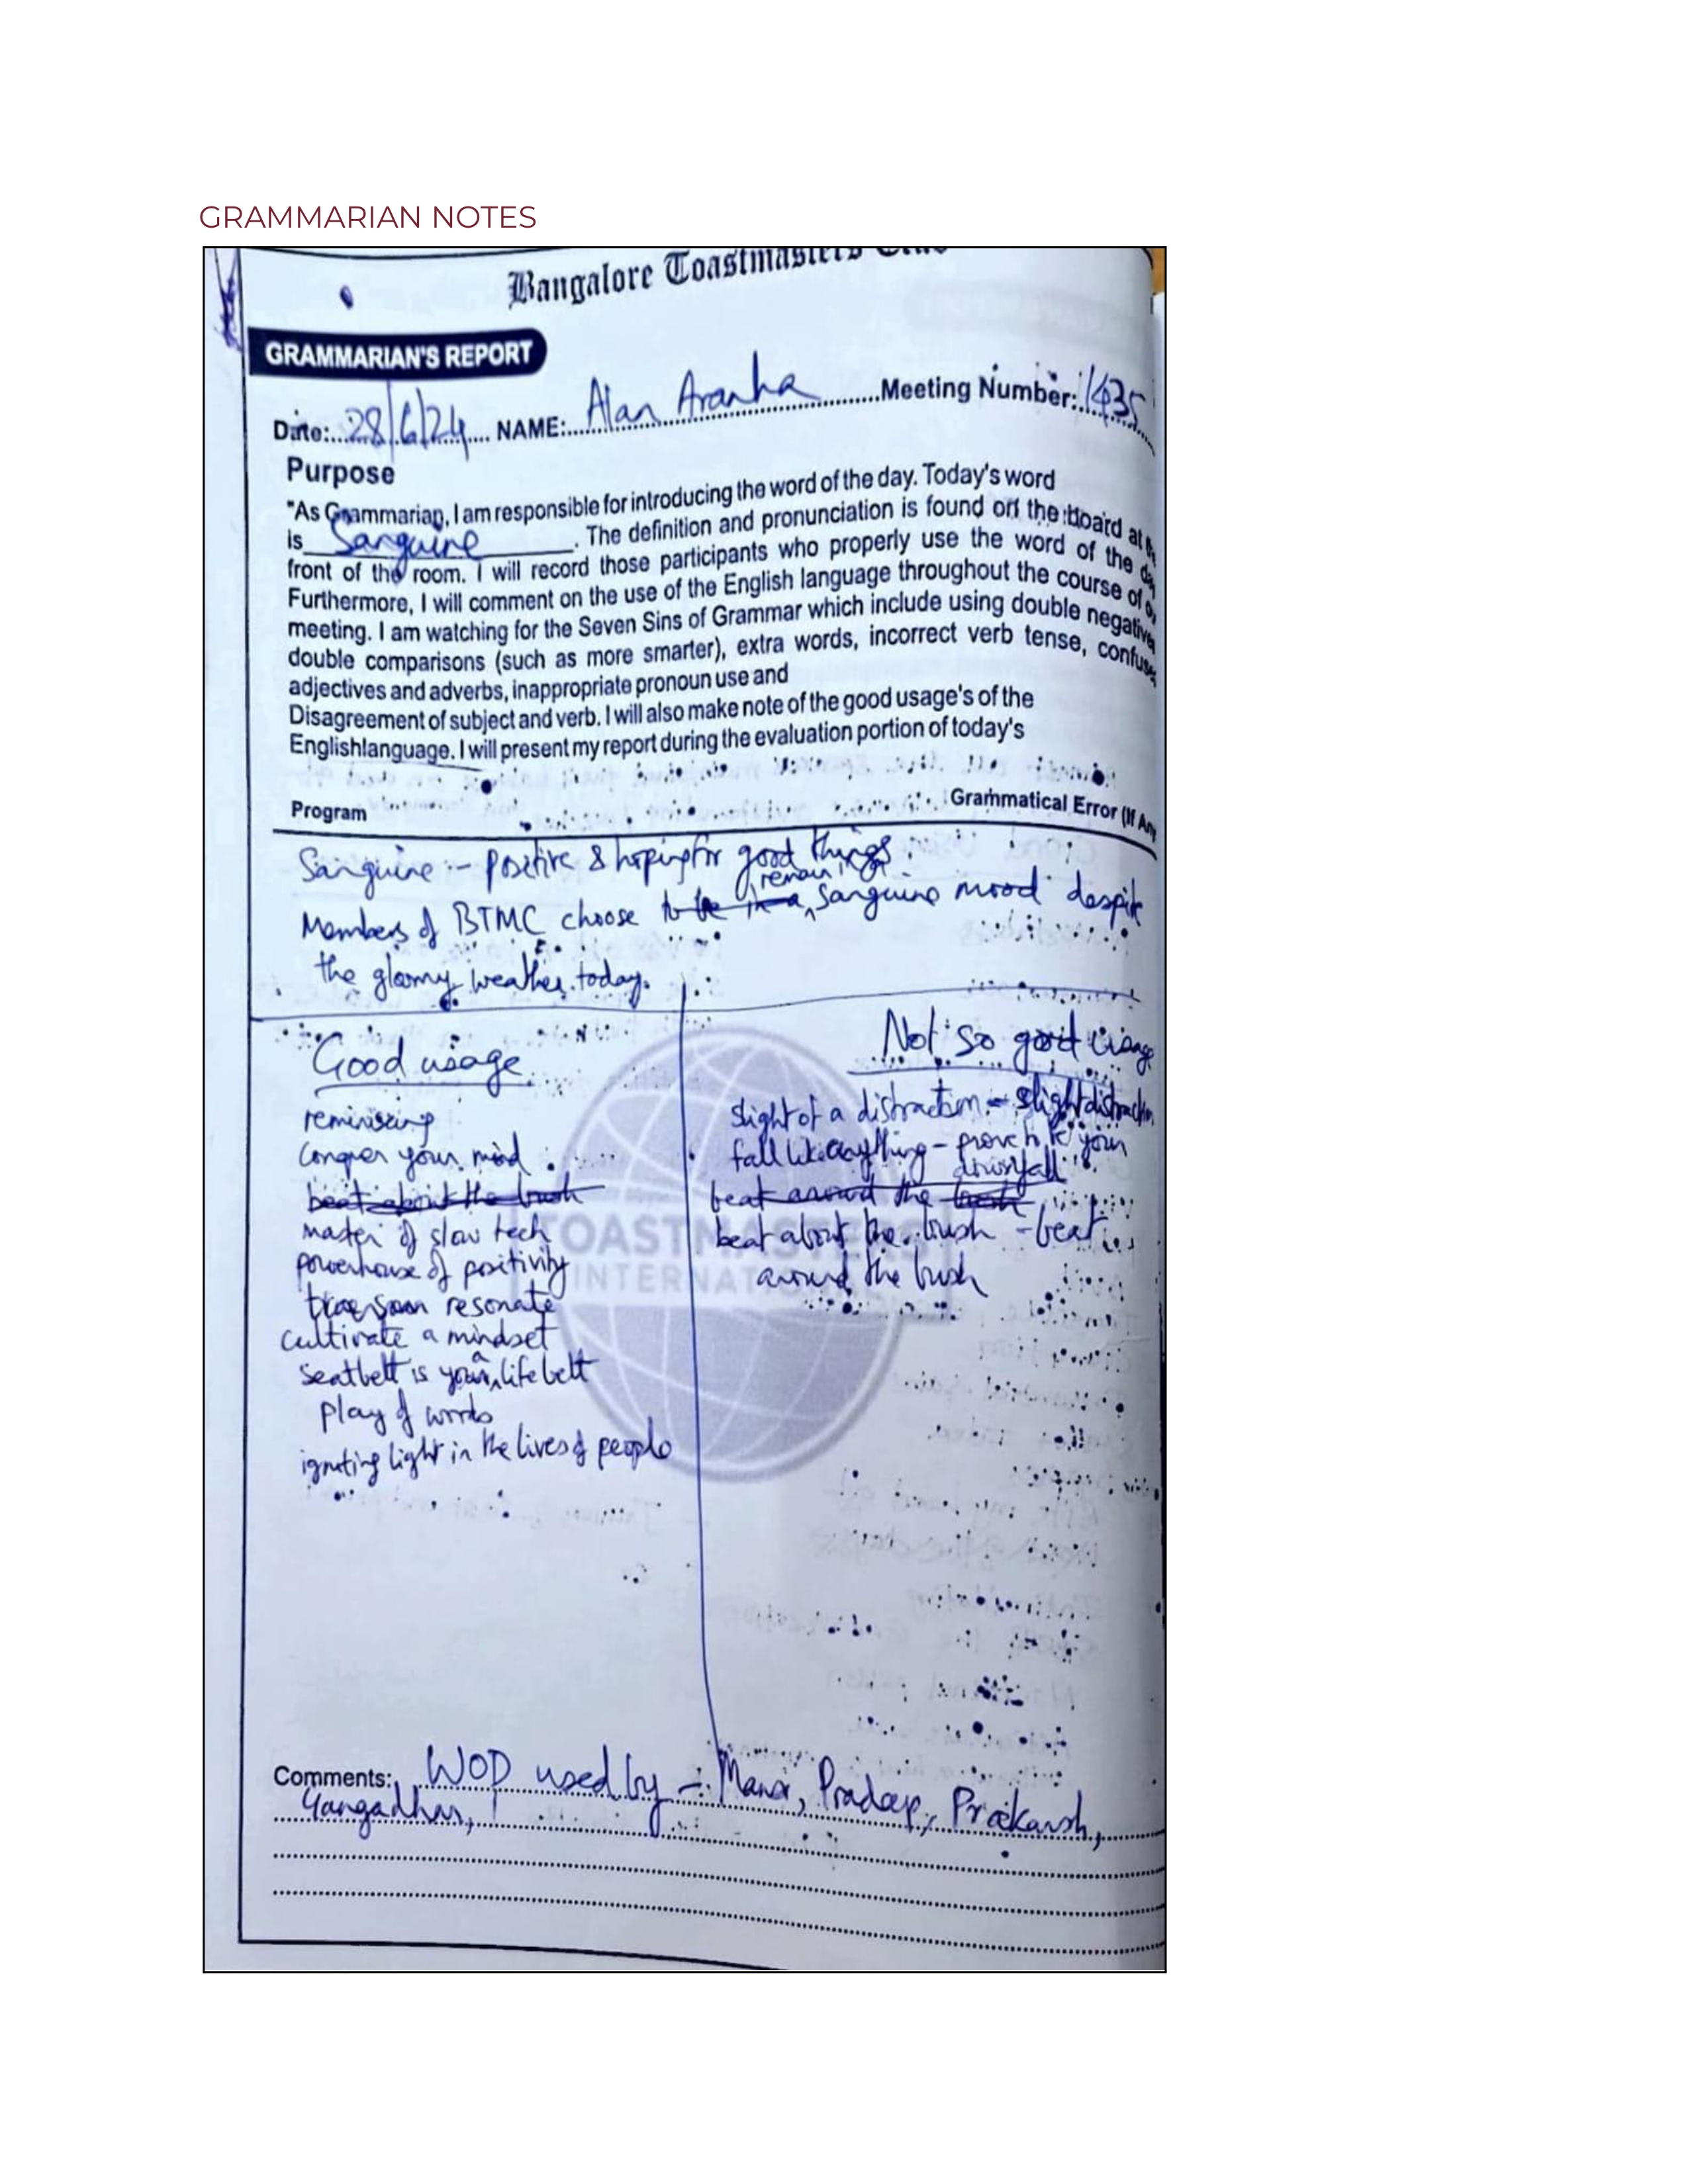 GRAMMARIAN NOTES
Bangalore Toastmasters
GRAMMARIAN'S REPORT
Date: 28/6/24 NAME: Alan Aranha Meeting Number: 1435
Purpose
"As Grammarian, I am responsible for introducing the word of the day. Today's word
is Sanguine. The definition and pronunciation is found on the board at
front of the room. I will record those participants who properly use the word of the
Furthermore, I will comment on the use of the English language throughout the course of
meeting. I am watching for the Seven Sins of Grammar which include using double negative
double comparisons (such as more smarter), extra words, incorrect verb tense, confuse
adjectives and adverbs, inappropriate pronoun use and
Disagreement of subject and verb. I will also make note of the good usage's of the
Englishlanguage. I will present my report during the evaluation portion of today's
Program Grammatical Error (If Any
Sanguine :- positive & hoping for good things.
Members of BTMC choose to remain sanguine mood despite
the gloomy weather today.
Good usage
reminiscing
conquer your mind
beat about the bush
master of slow tech
powerhouse of positivity
resonate
cultivate a mindset
Seatbelt is your a life belt
play of words
igniting light in the lives of people
Not so good usage
slight of a distraction - slight distraction
fall like anything - prove to be your
downfall
beat around the bush
beat about the bush - beat
around the bush
TOASTMASTERS
INTERNATIONAL
Comments: WOD used by - Pradeep, Prakash,
Gangadhar,